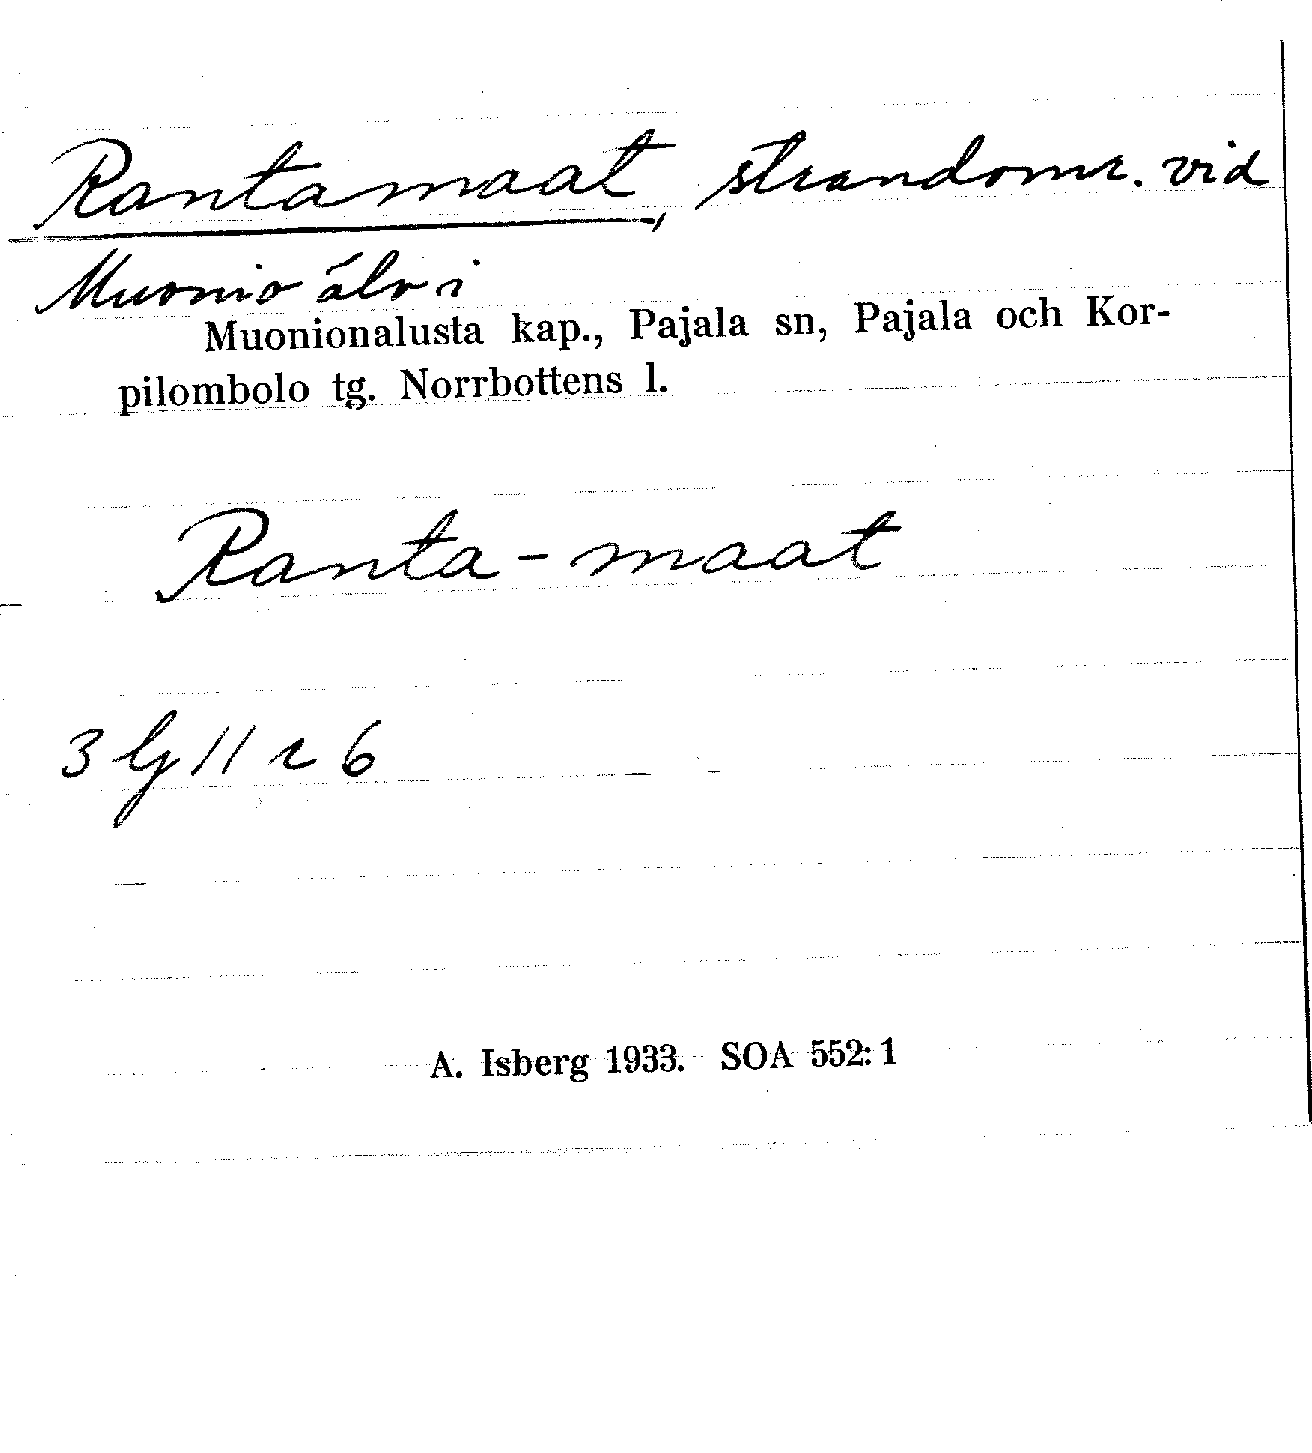 Rantamaat, strandomr. vid
Muonio älv i
Muonionalusta kap., Pajala sn, Pajala och Kor-
pilombolo tg. Norrbottens l.
Ranta-maat
3 lj 11 r 6
A. Isberg 1933. SOA 552:1